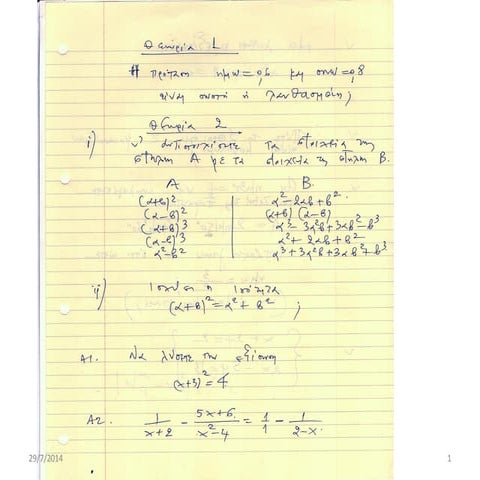 Θεωρία 1
# πρόταση ημω=0,6 και συνω=0,8
είναι σωστή ή λανθασμένη;
Θεωρία 2
i) Ν' αντιστοιχίσετε τα στοιχεία της
στήλης Α με τα στοιχεία της στήλης Β.
Α Β
(α+β)² α²-2αβ+β²
(α-β)² (α+β)(α-β)
(α+β)³ α³-3α²β+3αβ²-β³
(α-β)³ α²+2αβ+β²
α²-β² α³+3α²β+3αβ²+β³
ii) Ισχύει η ισότητα
(α+β)²=α²+β² ;
Α1. Να λύσετε την εξίσωση
(x+3)²=4
Α2. 1/(x+2) - (5x+6)/(x²-4) = 1/1 - 1/(2-x).
29/7/2014 1